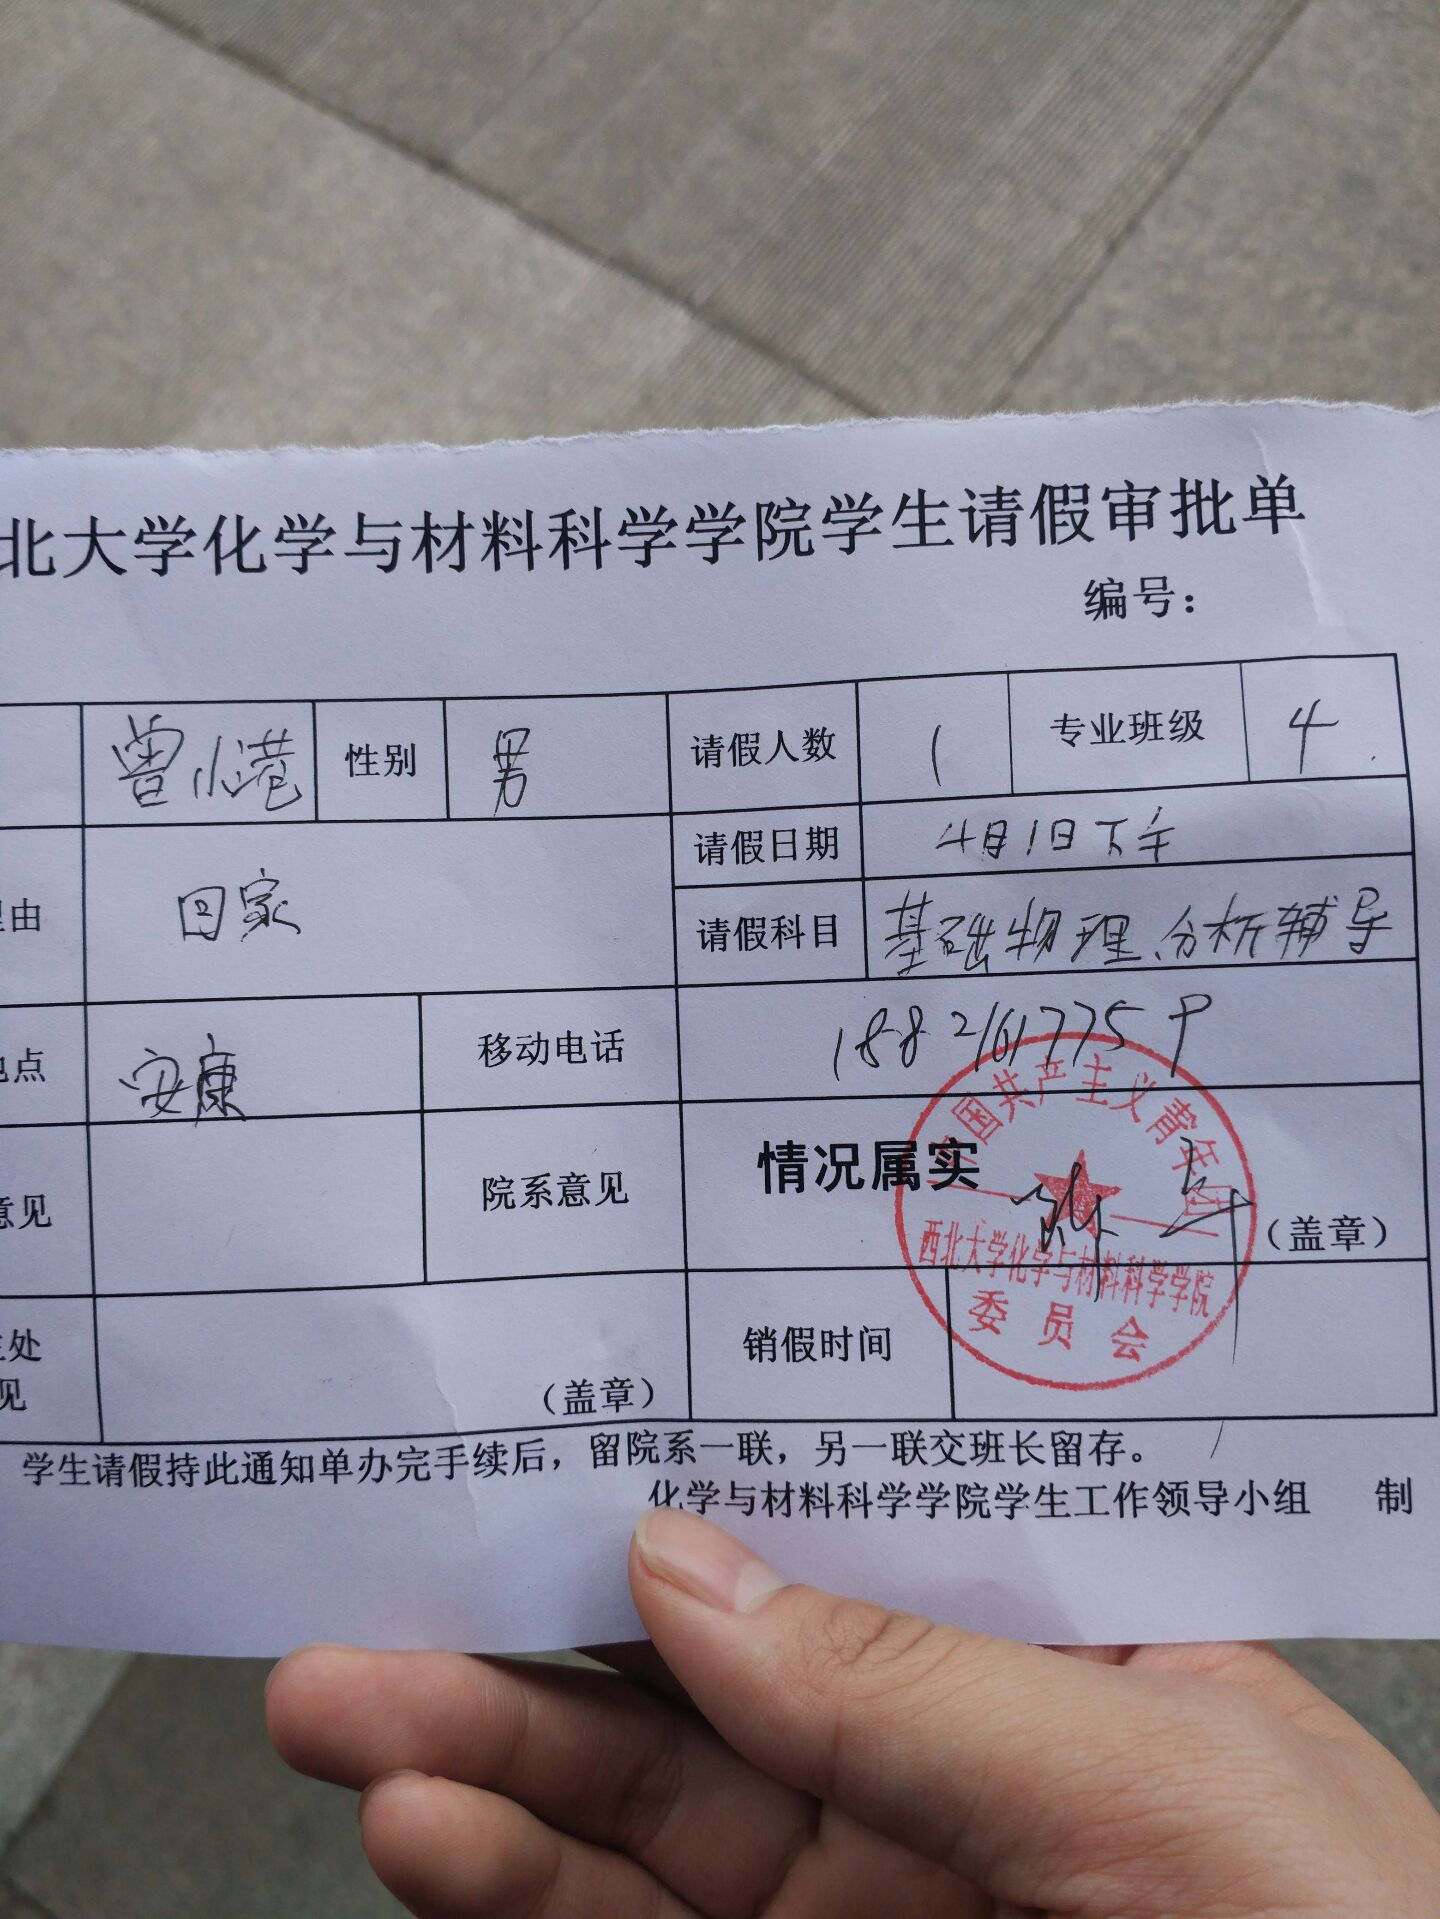 北大学化学与材料科学学院学生请假审批单
编号：
曾小港 性别 男 请假人数 1 专业班级 4
理由 回家 请假日期 4月1日下午
请假科目 基础物理、分析辅导
地点 安康 移动电话 18821617759
意见 院系意见 情况属实 （盖章）
中国共产主义青年团
西北大学化学与材料科学学院
委员会
处
见 （盖章） 销假时间
学生请假持此通知单办完手续后，留院系一联，另一联交班长留存。
化学与材料科学学院学生工作领导小组 制